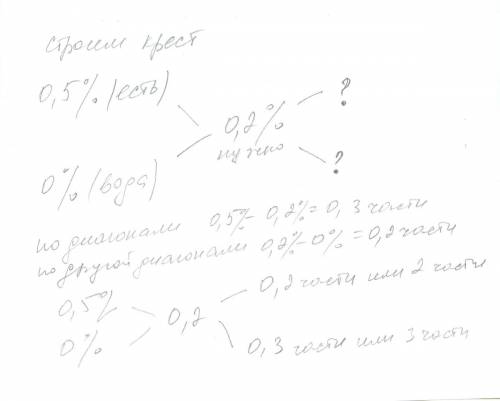 строим крест
0,5% (есть)
?
0,2%
нужно
0% (вода)
?
по диагонали 0,5% - 0,2% = 0,3 части
по другой диагонали 0,2% - 0% = 0,2 части
0,5%
0,2 части или 2 части
0,2
0%
0,3 части или 3 части